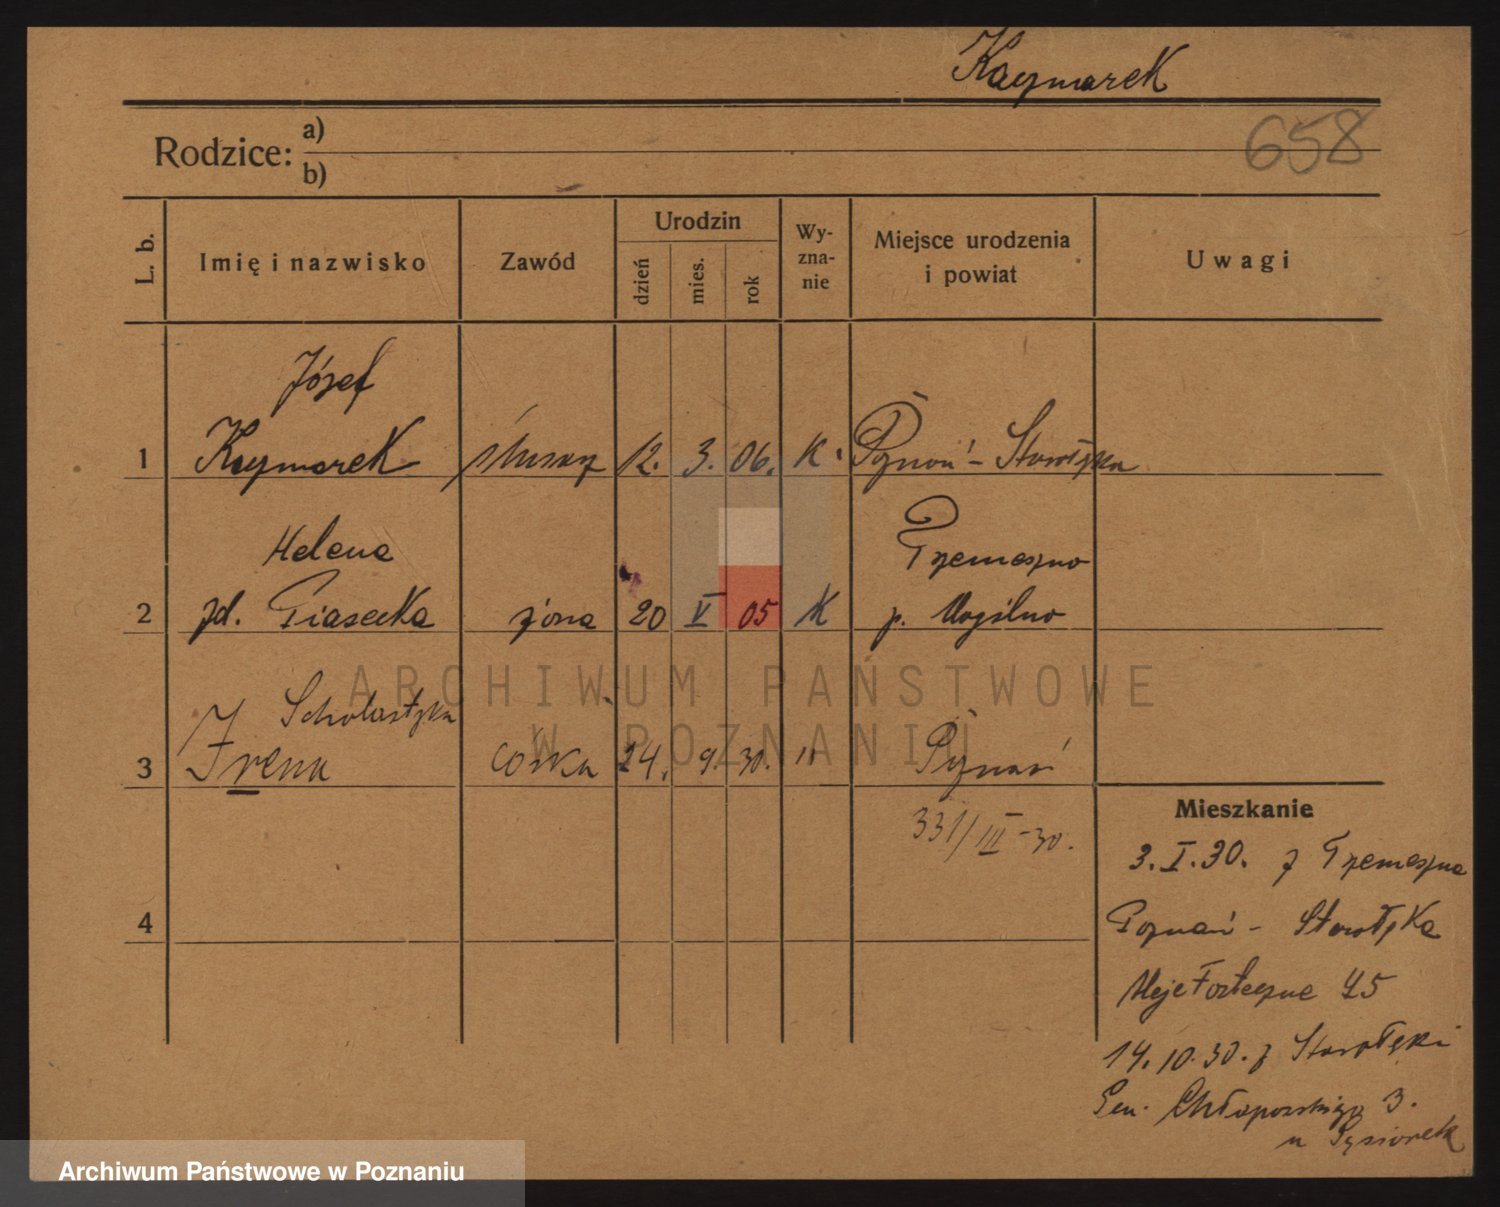 Kaczmarek
658
Rodzice: a)
b)
L. b. Imię i nazwisko Zawód Urodzin dzień mies. rok Wy-zna-nie Miejsce urodzenia i powiat Uwagi
Józef
1 Kaczmarek ślusarz 12. 3. 06. K. Poznań - Starołęka
Helena Trzemeszno
2 zd. Piasecka żona 20 V 05 K p. Mogilno
Scholastyka
3 Irena córka 24. 9. 30. " Poznań
331/III-30.
4
Mieszkanie
3.I.30. z Trzemeszna
Poznań - Starołęka
Forteczne 45
14.10.30. z Starołęki
Gen. Chłapowskiego 3.
u
ARCHIWUM PAŃSTWOWE
W POZNANIU
Archiwum Państwowe w Poznaniu